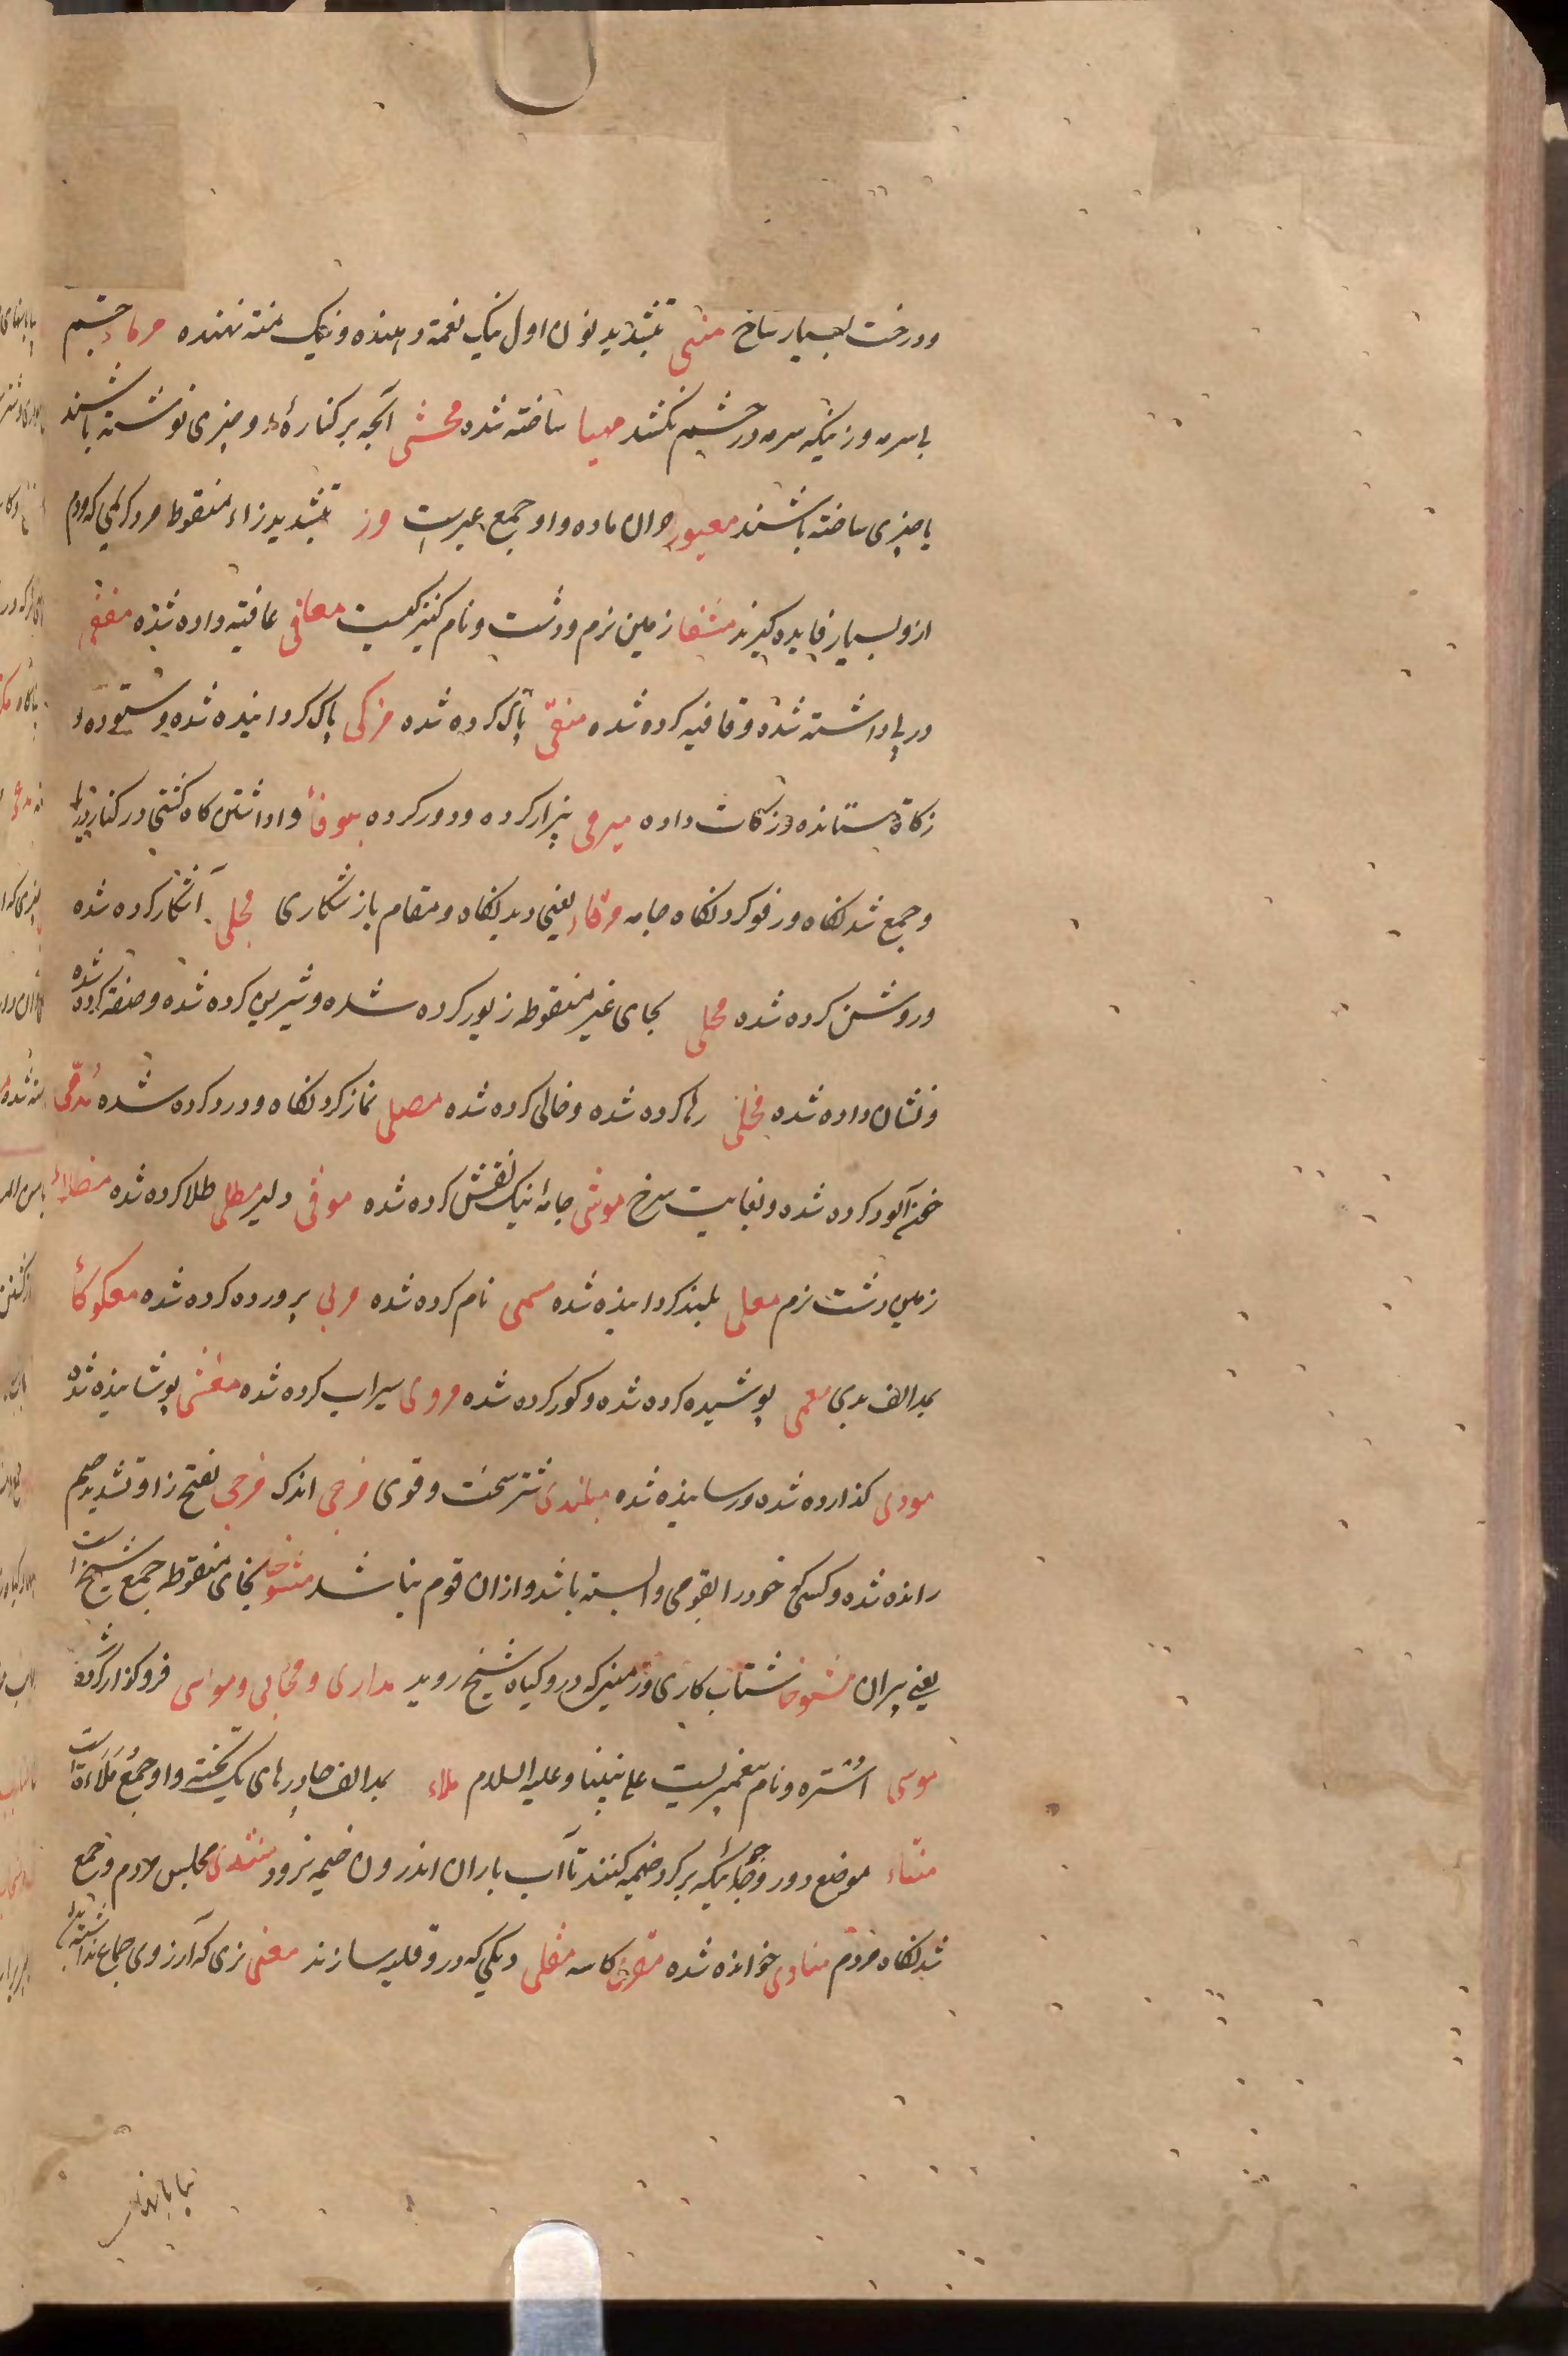 ودرخت بسیار شاخ منی بتشدید نون اول نیک نغمة دهنده ونیک منة نهنده مرهاء چشم
بی سرمه وزنیکه سرمه در چشم نکشد مهیا ساخته شده محشی آنچه بر کنارهٔ او چیزی نوشته باشند
یا چیزی ساخته باشند معیورا خران ماده واو جمع عیرست مز بتشدید زاء منقوط مرد کریمی که مردم
ازو بسیار فایده گیرند مشفا زمین نرم ودشت ونام کنیزکیست معافی عافیة داده شده مقفی
در پی داشته شده وقافیه کرده شده منقّی پاک کرده شده مزکی پاک گردانیده شده وستوده و
زکاة ستانده وزکات داده مرمی بیزار کرده ودور کرده موفأ واداشتن گاه کشتی در کنار دریا
وجمع شدنگاه ورفو کردنگاه جامه مرقاء یعنی دیدنگاه ومقام باز شکاری مجلی آشکار کرده شده
وروشن کرده شده محلی بحای غیر منقوطه زیور کرده شده وشیرین کرده شده وصفة کرده شده
ونشان داده شده مخلی رها کرده شده وخالی کرده شده مصلی نماز کردنگاه ودرود کرده شده مُدمّی
خون آلود کرده شده وبغایت سرخ موشی جامهٔ نیک نقش کرده شده موفی دلیر مطلی طلا کرده شده
زمین دشت نرم معلی بلند گردانیده شده مسمی نام کرده شده مربی پرورده کرده شده معکوکا
بمد الف بدی معمی پوشیده کرده شده وکور کرده شده مروی سیراب کرده شده مغشی پوشانیده شده
مودی گذارده شده ورسانیده شده مبلندی شتر سخت وقوی مزجی اندک مزجی بفتح زا وتشدید جیم
رانده شده وکسیکه خود را بقومی وابسته باشد وازان قوم نباشد مشیوخا بخای منقوطه جمع شیخ است
یعنی پیران مشیوخا شتاب کاری وزمینیکه درو گیاه شیخ روید مداری ومحابی ومواسی فروگذار کرده شده
موسی اُستره ونام پیغمبریست علی نبینا وعلیه السلام ملاء بمد الف چادرهای یک تخته واو جمعُ مُلَاءَة است
منتاء موضع دور وجائیکه بر گرد خیمه کنند تا آب باران اندرون خیمه نرود منتدی مجلس مردم وجمع
شدنگاه مردم منادی خوانده شده مقری کاسه مقلی دیگی که درو قلیه سازند مغنی نری که آرزوی جماع نداشته باشد